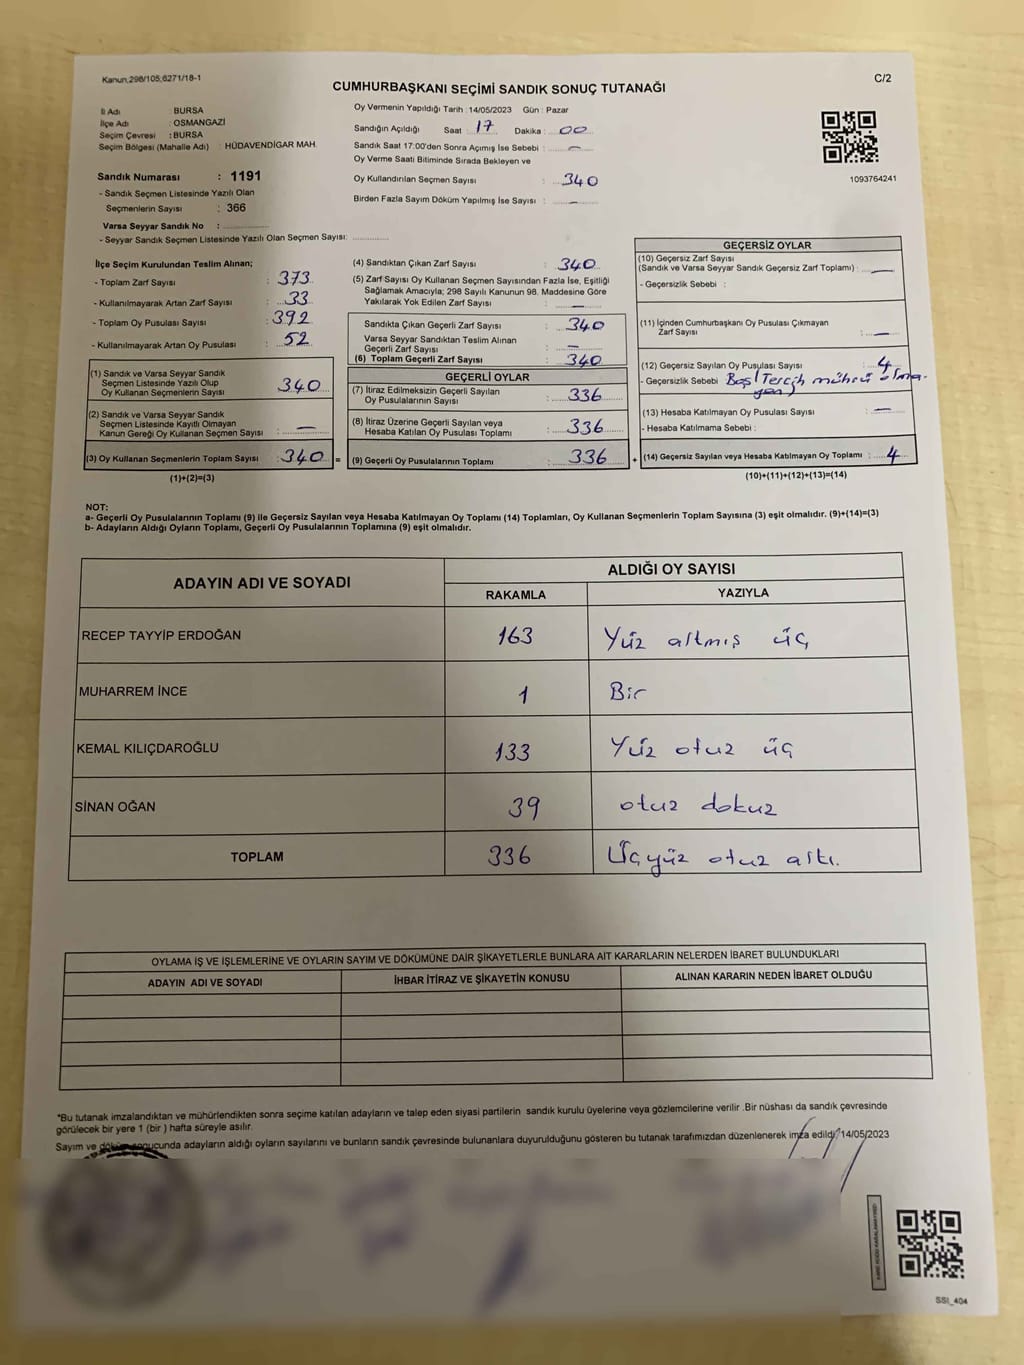 Kanun;298/105;6271/18-1
C/2
CUMHURBAŞKANI SEÇİMİ SANDIK SONUÇ TUTANAĞI
İl Adı : BURSA
İlçe Adı : OSMANGAZİ
Seçim Çevresi : BURSA
Seçim Bölgesi (Mahalle Adı) : HÜDAVENDİGAR MAH.
Sandık Numarası : 1191
- Sandık Seçmen Listesinde Yazılı Olan
Seçmenlerin Sayısı : 366
Varsa Seyyar Sandık No :
- Seyyar Sandık Seçmen Listesinde Yazılı Olan Seçmen Sayısı:
Oy Vermenin Yapıldığı Tarih : 14/05/2023 Gün : Pazar
Sandığın Açıldığı Saat : 17 Dakika : 00
Sandık Saat 17:00'den Sonra Açımış İse Sebebi : —
Oy Verme Saati Bitiminde Sırada Bekleyen ve
Oy Kullandırılan Seçmen Sayısı : 340
Birden Fazla Sayım Döküm Yapılmış İse Sayısı : —
1093764241
İlçe Seçim Kurulundan Teslim Alınan;
- Toplam Zarf Sayısı : 373
- Kullanılmayarak Artan Zarf Sayısı : 33
- Toplam Oy Pusulası Sayısı : 392
- Kullanılmayarak Artan Oy Pusulası : 52
(1) Sandık ve Varsa Seyyar Sandık
Seçmen Listesinde Yazılı Olup
Oy Kullanan Seçmenlerin Sayısı : 340
(2) Sandık ve Varsa Seyyar Sandık
Seçmen Listesinde Kayıtlı Olmayan
Kanun Gereği Oy Kullanan Seçmen Sayısı : —
(3) Oy Kullanan Seçmenlerin Toplam Sayısı : 340 =
(1)+(2)=(3)
(4) Sandıktan Çıkan Zarf Sayısı : 340
(5) Zarf Sayısı Oy Kullanan Seçmen Sayısından Fazla İse, Eşitliği
Sağlamak Amacıyla; 298 Sayılı Kanunun 98. Maddesine Göre
Yakılarak Yok Edilen Zarf Sayısı : —
Sandıkta Çıkan Geçerli Zarf Sayısı : 340
Varsa Seyyar Sandıktan Teslim Alınan
Geçerli Zarf Sayısı : —
(6) Toplam Geçerli Zarf Sayısı : 340
GEÇERLİ OYLAR
(7) İtiraz Edilmeksizin Geçerli Sayılan
Oy Pusulalarının Sayısı : 336
(8) İtiraz Üzerine Geçerli Sayılan veya
Hesaba Katılan Oy Pusulası Toplamı : 336
(9) Geçerli Oy Pusulalarının Toplamı : 336 +
GEÇERSİZ OYLAR
(10) Geçersiz Zarf Sayısı
(Sandık ve Varsa Seyyar Sandık Geçersiz Zarf Toplamı) : —
- Geçersizlik Sebebi :
(11) İçinden Cumhurbaşkanı Oy Pusulası Çıkmayan
Zarf Sayısı : —
(12) Geçersiz Sayılan Oy Pusulası Sayısı : 4
- Geçersizlik Sebebi Boş (Tercih mührü olma-
yan)
(13) Hesaba Katılmayan Oy Pusulası Sayısı : —
- Hesaba Katılmama Sebebi :
(14) Geçersiz Sayılan veya Hesaba Katılmayan Oy Toplamı : 4
(10)+(11)+(12)+(13)=(14)
NOT:
a- Geçerli Oy Pusulalarının Toplamı (9) ile Geçersiz Sayılan veya Hesaba Katılmayan Oy Toplamı (14) Toplamları, Oy Kullanan Seçmenlerin Toplam Sayısına (3) eşit olmalıdır. (9)+(14)=(3)
b- Adayların Aldığı Oyların Toplamı, Geçerli Oy Pusulalarının Toplamına (9) eşit olmalıdır.
ADAYIN ADI VE SOYADI
ALDIĞI OY SAYISI
RAKAMLA YAZIYLA
RECEP TAYYİP ERDOĞAN 163 Yüz altmış üç
MUHARREM İNCE 1 Bir
KEMAL KILIÇDAROĞLU 133 Yüz otuz üç
SİNAN OĞAN 39 otuz dokuz
TOPLAM 336 Üçyüz otuz altı.
OYLAMA İŞ VE İŞLEMLERİNE VE OYLARIN SAYIM VE DÖKÜMÜNE DAİR ŞİKAYETLERLE BUNLARA AİT KARARLARIN NELERDEN İBARET BULUNDUKLARI
ADAYIN ADI VE SOYADI İHBAR İTİRAZ VE ŞİKAYETİN KONUSU ALINAN KARARIN NEDEN İBARET OLDUĞU
*Bu tutanak imzalandıktan ve mühürlendikten sonra seçime katılan adayların ve talep eden siyasi partilerin sandık kurulu üyelerine veya gözlemcilerine verilir .Bir nüshası da sandık çevresinde
görülecek bir yere 1 (bir ) hafta süreyle asılır.
Sayım ve döküm sonucunda adayların aldığı oyların sayılarını ve bunların sandık çevresinde bulunanlara duyurulduğunu gösteren bu tutanak tarafımızdan düzenlenerek imza edildi. 14/05/2023
SSI_404